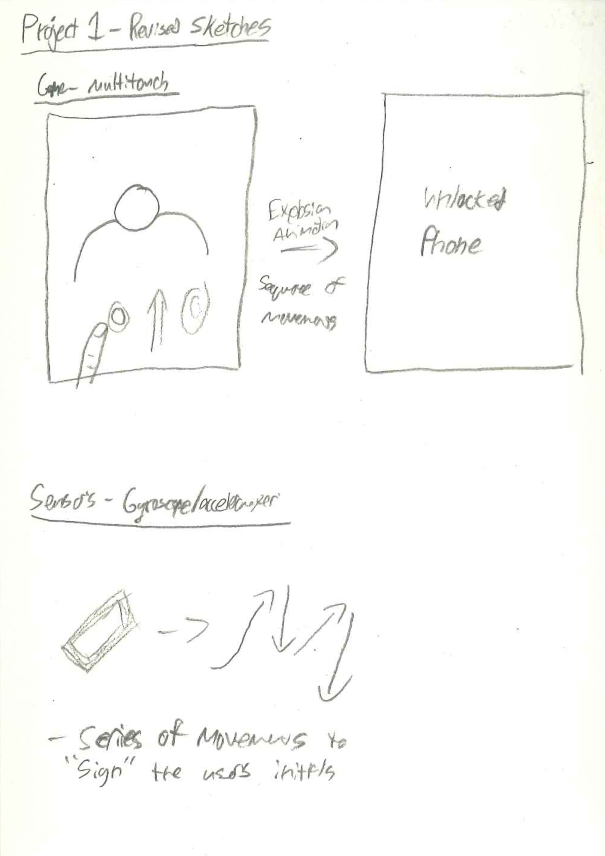 Project 1 - Revised Sketches
Game - Multitouch
Explosion
Animation
Sequence of
Movements
Unlocked
Phone
Sensors - Gyroscope/accelerometer
- Series of Movements to
"Sign" the users initials